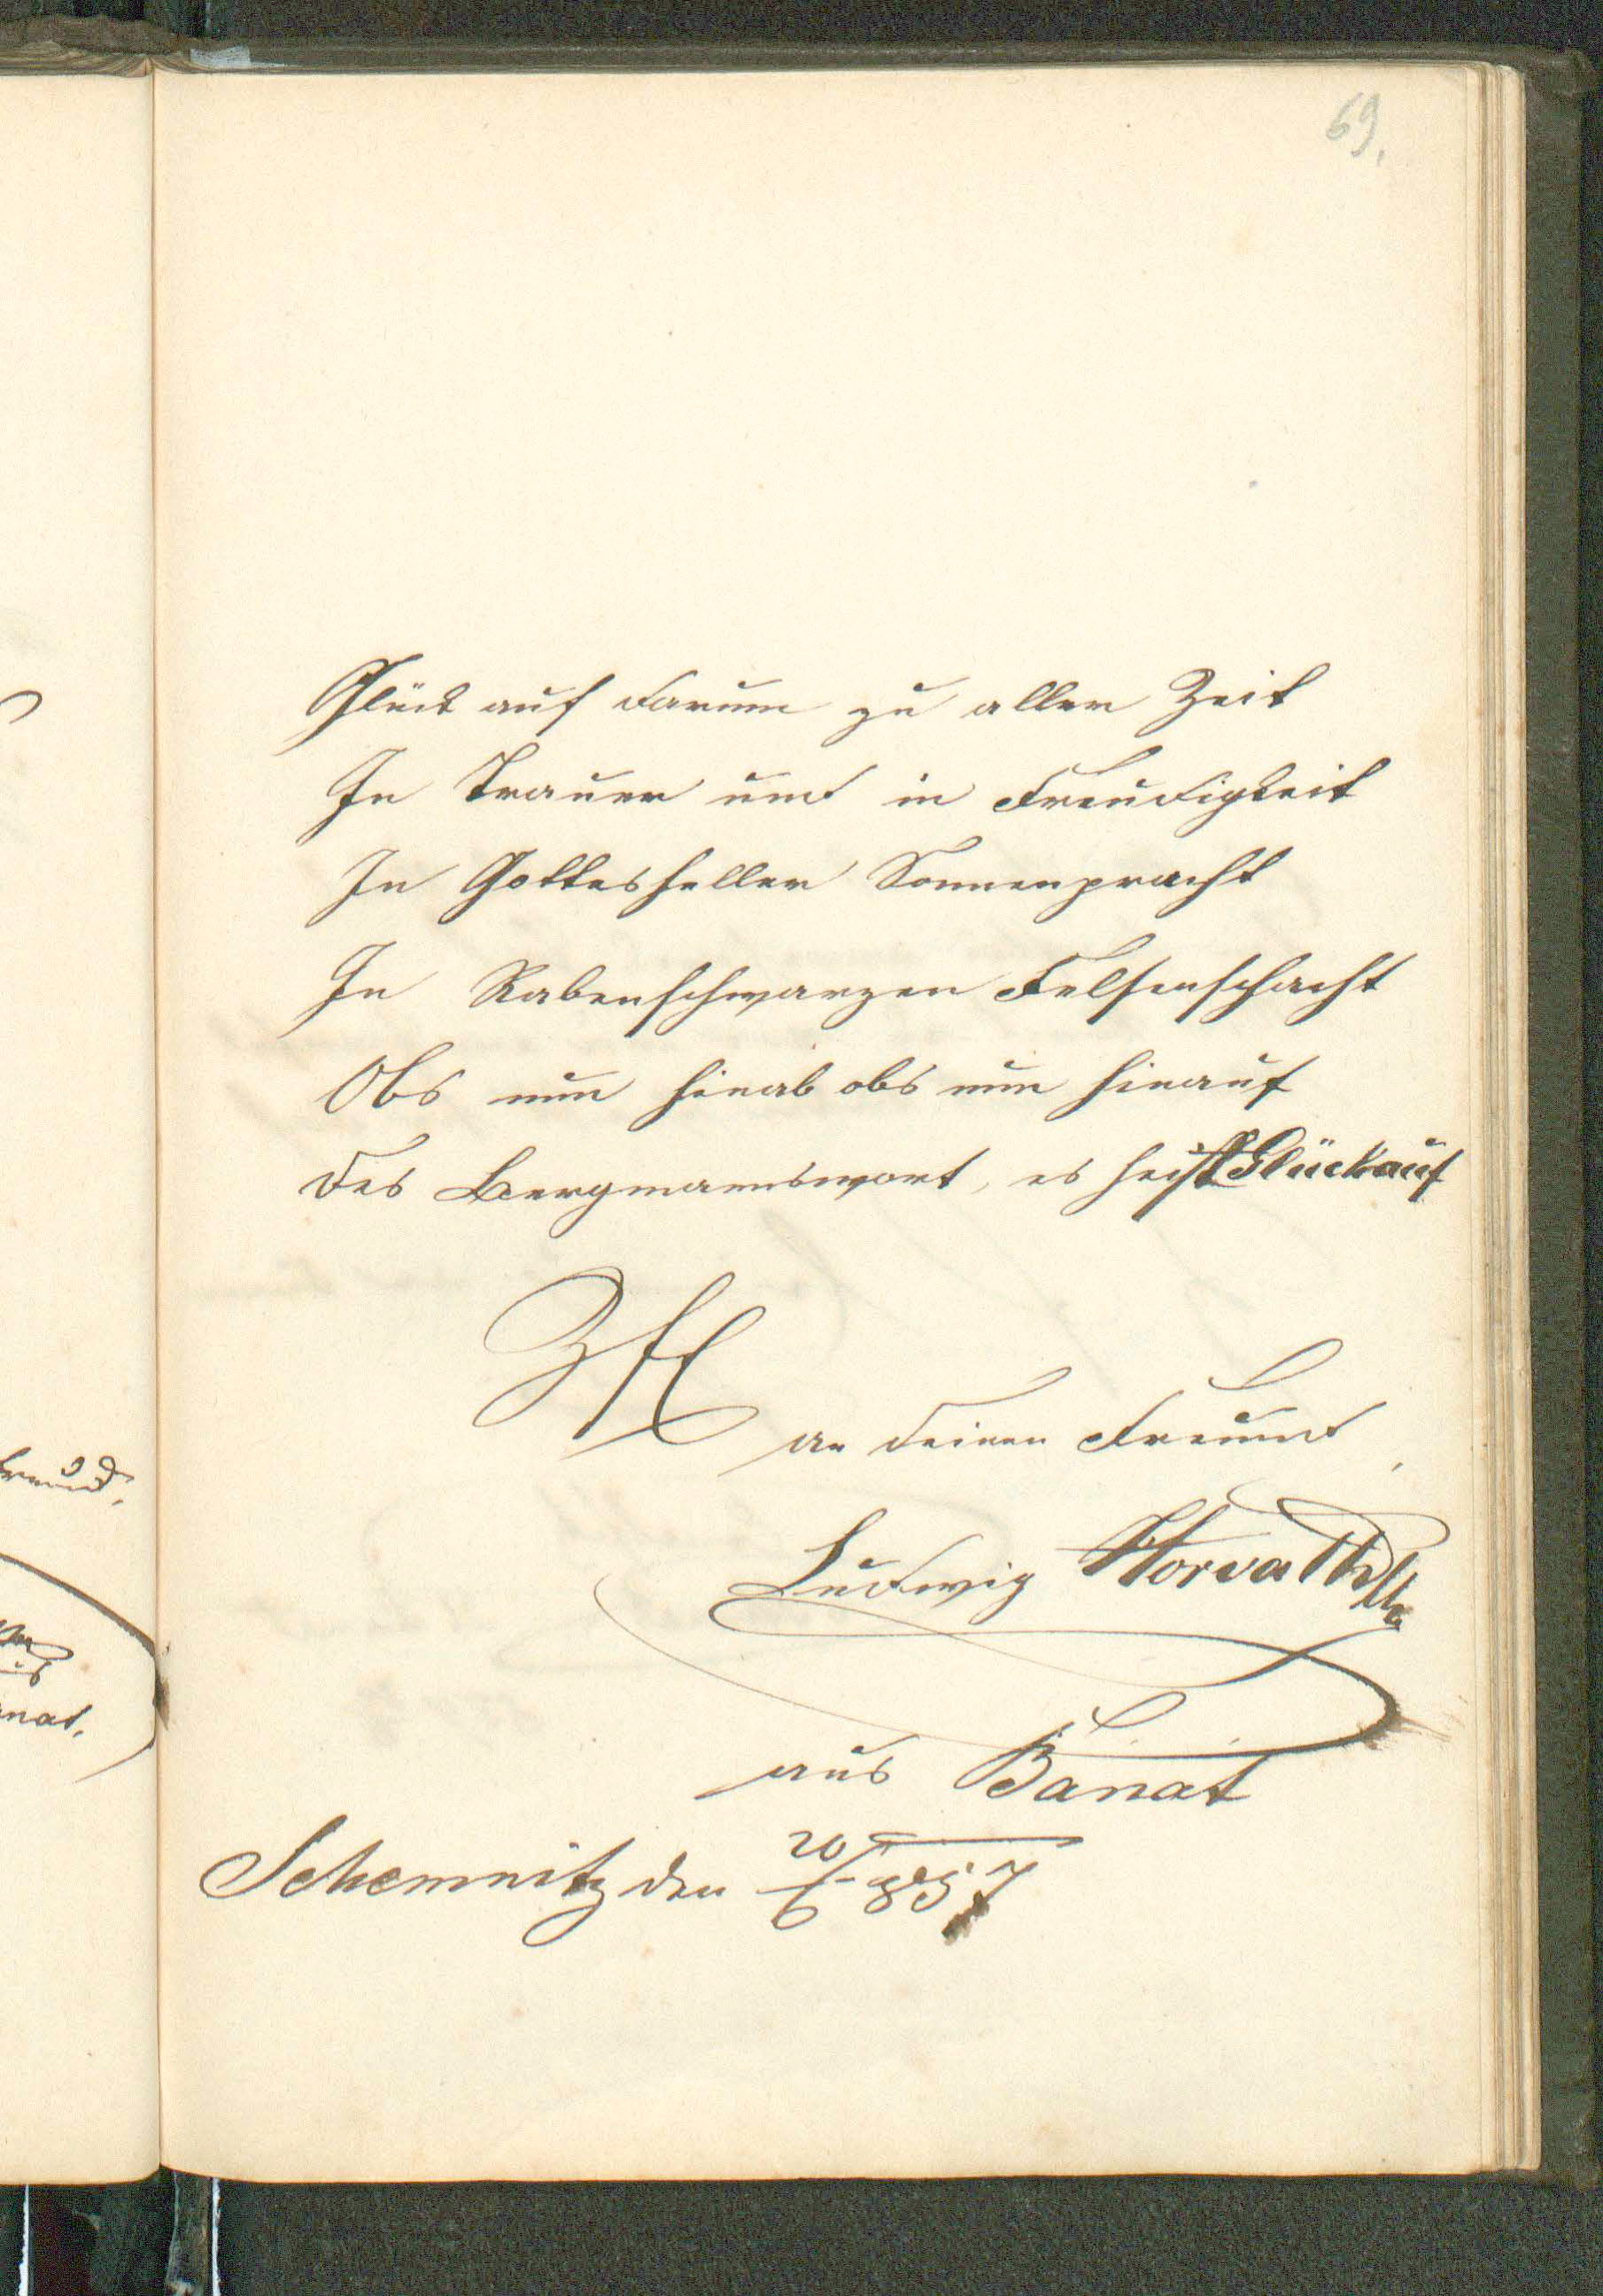 69.
Glück auf darum zu aller Zeit
In Trauer und in Freudigkeit
In Gottesheller Sonnenpracht
In Rabenschwarzen Felsenschacht
Obs nun hinab obs nun hinauf
Des Bergmannswort, es heist Glückauf
an deinen Freund,
Ludwig Horvath
aus Banat
Schemnitz den 20/6 857